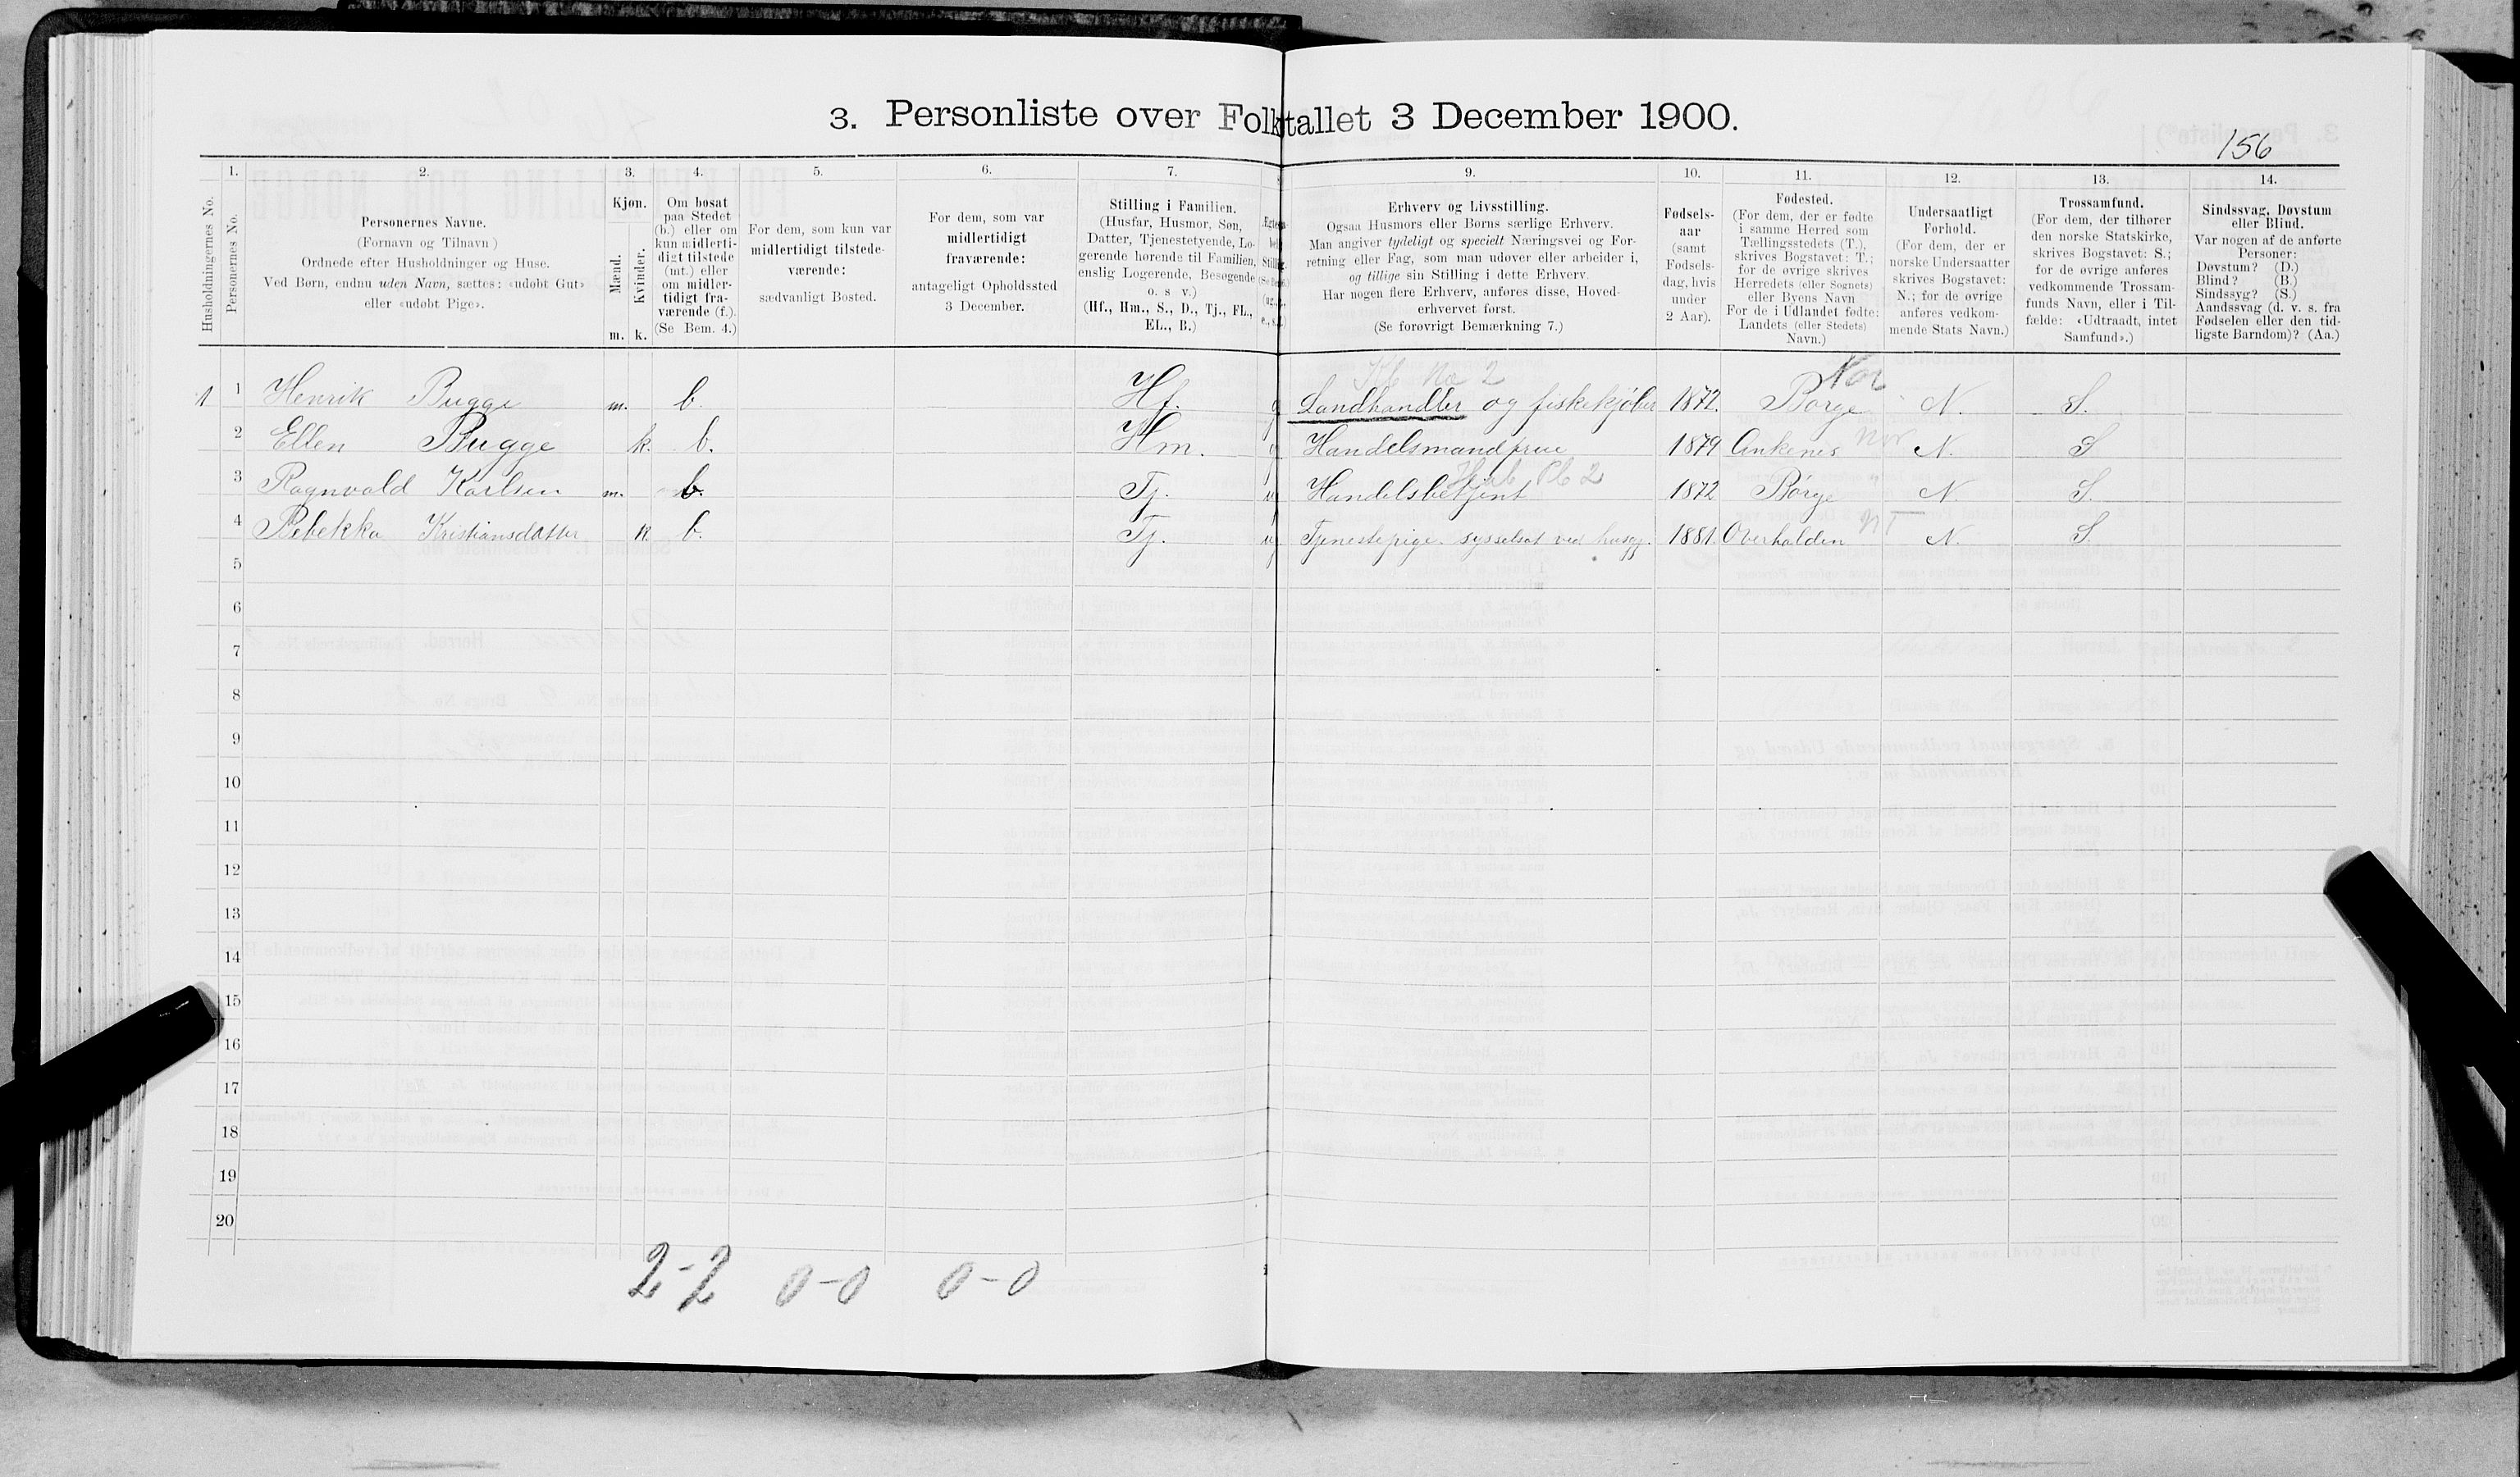 3. Personliste over Folketallet 3 December 1900.
156
Husholdningernes No.
1.
Personernes No.
2.
Personernes Navne.
(Fornavn og Tilnavn)
Ordnede efter Husholdninger og Huse.
Ved Børn, endnu uden Navn, sættes: «udøbt Gut»
eller «udøbt Pige».
3.
Kjøn.
Mænd.
Kvinder.
m. k.
4.
Om bosat
paa Stedet
(b.) eller om
kun midlerti-
digt tilstede
(mt.) eller
om midler-
tidigt fra-
værende (f.).
(Se Bem. 4.)
5.
For dem, som kun var
midlertidigt tilstede-
værende:
sædvanligt Bosted.
6.
For dem, som var
midlertidigt
fraværende:
antageligt Opholdssted
3 December.
7.
Stilling i Familien.
(Husfar, Husmor, Søn,
Datter, Tjenestetyende, Lo-
gerende hørende til Familien,
enslig Logerende, Besøgende
o. s v.)
(Hf., Hm., S., D., Tj., FL.,
EL., B.)
9.
Erhverv og Livsstilling.
Ogsaa Husmors eller Børns særlige Erhverv.
Man angiver tydeligt og specielt Næringsvei og For-
retning eller Fag, som man udøver eller arbeider i,
og tillige sin Stilling i dette Erhverv.
Har nogen flere Erhverv, anføres disse, Hoved-
erhvervet først.
(Se forøvrigt Bemærkning 7.)
10.
Fødsels-
aar
(samt
Fødsels-
dag, hvis
under
2 Aar).
11.
Fødested.
(For dem, der er fødte
i samme Herred som
Tællingsstedets (T.),
skrives Bogstavet: T.;
for de øvrige skrives
Herredets (eller Sognets)
eller Byens Navn
For de i Udlandet fødte:
Landets (eller Stedets)
Navn.)
12.
Undersaatligt
Forhold.
(For dem, der er
norske Undersaatter
skrives Bogstavet:
N.; for de øvrige
anføres vedkom-
mende Stats Navn.)
13.
Trossamfund.
(For dem, der tilhører
den norske Statskirke,
skrives Bogstavet: S.;
for de øvrige anføres
vedkommende Trossam-
funds Navn, eller i Til-
fælde: «Udtraadt, intet
Samfund».)
14.
Sindssvag, Døvstum
eller Blind.
Var nogen af de anførte
Personer:
Døvstum? (D.)
Blind? (B.)
Sindssyg? (S.)
Aandssvag (d. v. s. fra
Fødselen eller den tid-
ligste Barndom)? (Aa.)
No 2 Nor
1 1 Henrik Bugge m. b. Hf. g Landhandler og fiskekjøber 1872. Borge N. S.
2 Ellen Bugge k. b. Hm. g Handelsmandfrue 1879 Ankenes Nor N. S
3 Ragnvald Karlsen m. b. Tj. ug Handelsbetjent 2 1872 Börge " N. S.
4 Rebekka Kristiansdatter k. b. Tj. ug Tjenestepige sysselsat ved husgj. 1881. Overhalden NT N. S.
5
6
7
8
9
10
11
12
13
14
15
16
17
18
19
20
2-2 0-0 0-0